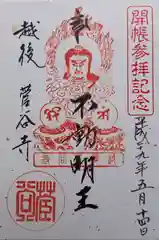 開帳参拝記念
平成二十九年五月十四日
奉
不動明王
越後
菅谷寺